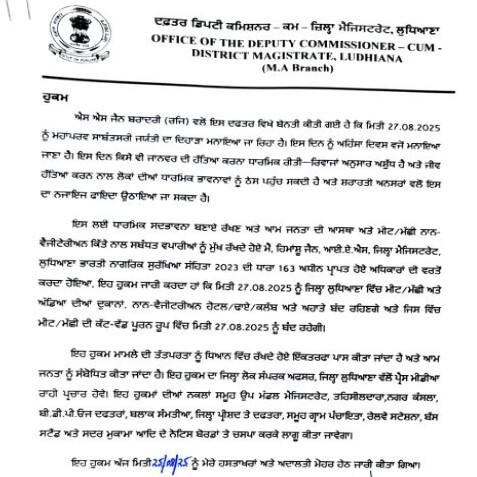 ਦਫ਼ਤਰ ਡਿਪਟੀ ਕਮਿਸ਼ਨਰ – ਕਮ – ਜ਼ਿਲ੍ਹਾ ਮੈਜਿਸਟਰੇਟ, ਲੁਧਿਆਣਾ
OFFICE OF THE DEPUTY COMMISSIONER – CUM -
DISTRICT MAGISTRATE, LUDHIANA
(M.A Branch)
ਹੁਕਮ
ਐਸ ਐਸ ਜੈਨ ਬਰਾਦਰੀ (ਰਜਿ) ਵਲੋਂ ਇਸ ਦਫਤਰ ਵਿਖੇ ਬੇਨਤੀ ਕੀਤੀ ਗਈ ਹੈ ਕਿ ਮਿਤੀ 27.08.2025
ਨੂੰ ਮਹਾਪਰਵ ਸਾਬੰਤਸਰੀ ਜਯੰਤੀ ਦਾ ਦਿਹਾੜਾ ਮਨਾਇਆ ਜਾ ਰਿਹਾ ਹੈ। ਇਸ ਦਿਨ ਨੂੰ ਅਹਿੰਸਾ ਦਿਵਸ ਵਜੋਂ ਮਨਾਇਆ
ਜਾਣਾ ਹੈ। ਇਸ ਦਿਨ ਕਿਸੇ ਵੀ ਜਾਨਵਰ ਦੀ ਹੱਤਿਆ ਕਰਨਾ ਧਾਰਮਿਕ ਰੀਤੀ–ਰਿਵਾਜਾਂ ਅਨੁਸਾਰ ਅਸ਼ੁੱਭ ਹੈ ਅਤੇ ਜੀਵ
ਹੱਤਿਆ ਕਰਨ ਨਾਲ ਲੋਕਾਂ ਦੀਆਂ ਧਾਰਮਿਕ ਭਾਵਨਾਵਾਂ ਨੂੰ ਠੇਸ ਪਹੁੰਚ ਸਕਦੀ ਹੈ ਅਤੇ ਸ਼ਰਾਰਤੀ ਅਨਸਰਾਂ ਵਲੋਂ ਇਸ
ਦਾ ਨਜਾਇਜ ਫਾਇਦਾ ਉਠਾਇਆ ਜਾ ਸਕਦਾ ਹੈ।
ਇਸ ਲਈ ਧਾਰਮਿਕ ਸਦਭਾਵਨਾ ਬਣਾਏ ਰੱਖਣ ਅਤੇ ਆਮ ਜਨਤਾ ਦੀ ਆਸਥਾ ਅਤੇ ਮੀਟ/ਮੱਛੀ ਨਾਨ-
ਵੈਜੀਟੇਰੀਅਨ ਕਿੱਤੇ ਨਾਲ ਸਬੰਧਤ ਵਪਾਰੀਆਂ ਨੂੰ ਮੁੱਖ ਰੱਖਦੇ ਹੋਏ ਮੈਂ, ਹਿਮਾਂਸ਼ੂ ਜੈਨ, ਆਈ.ਏ.ਐਸ, ਜ਼ਿਲ੍ਹਾ ਮੈਜਿਸਟਰੇਟ,
ਲੁਧਿਆਣਾ ਭਾਰਤੀ ਨਾਗਰਿਕ ਸੁਰੱਖਿਆ ਸੰਹਿਤਾ 2023 ਦੀ ਧਾਰਾ 163 ਅਧੀਨ ਪ੍ਰਾਪਤ ਹੋਏ ਅਧਿਕਾਰਾਂ ਦੀ ਵਰਤੋਂ
ਕਰਦਾ ਹੋਇਆ, ਇਹ ਹੁਕਮ ਜਾਰੀ ਕਰਦਾ ਹਾਂ ਕਿ ਮਿਤੀ 27.08.2025 ਨੂੰ ਜ਼ਿਲ੍ਹਾ ਲੁਧਿਆਣਾ ਵਿੱਚ ਮੀਟ/ਮੱਛੀ ਅਤੇ
ਅੰਡਿਆ ਦੀਆਂ ਦੁਕਾਨਾਂ, ਨਾਨ-ਵੈਜੀਟਰੀਅਨ ਹੋਟਲ/ਢਾਬੇ/ਕਲੱਬ ਅਤੇ ਅਹਾਤੇ ਬੰਦ ਰਹਿਣਗੇ ਅਤੇ ਜਿਸ ਵਿੱਚ
ਮੀਟ/ਮੱਛੀ ਦੀ ਕੱਟ-ਵੱਢ ਪੂਰਨ ਰੂਪ ਵਿੱਚ ਮਿਤੀ 27.08.2025 ਨੂੰ ਬੰਦ ਰਹੇਗੀ।
ਇਹ ਹੁਕਮ ਮਾਮਲੇ ਦੀ ਤੱਤਪਰਤਾ ਨੂੰ ਧਿਆਨ ਵਿੱਚ ਰੱਖਦੇ ਹੋਏ ਇੱਕਤਰਫਾ ਪਾਸ ਕੀਤਾ ਜਾਂਦਾ ਹੈ ਅਤੇ ਆਮ
ਜਨਤਾ ਨੂੰ ਸੰਬੋਧਿਤ ਕੀਤਾ ਜਾਂਦਾ ਹੈ। ਇਹ ਹੁਕਮ ਦਾ ਜ਼ਿਲ੍ਹਾ ਲੋਕ ਸੰਪਰਕ ਅਫਸਰ, ਜ਼ਿਲ੍ਹਾ ਲੁਧਿਆਣਾ ਵੱਲੋਂ ਪ੍ਰੈਸ ਮੀਡੀਆ
ਰਾਹੀਂ ਪ੍ਰਚਾਰ ਹੋਵੇ। ਇਹ ਹੁਕਮਾਂ ਦੀਆਂ ਨਕਲਾਂ ਸਮੂਹ ਉਪ ਮੰਡਲ ਮੈਜਿਸਟਰੇਟ, ਤਹਿਸੀਲਦਾਰਾ,ਨਗਰ ਕੌਸਲਾ,
ਬੀ.ਡੀ.ਪੀ.ਓਜ ਦਫਤਰਾਂ, ਬਲਾਕ ਸੰਮਤੀਆ, ਜ਼ਿਲ੍ਹਾ ਪ੍ਰੀਸ਼ਦ ਤੇ ਦਫਤਰਾਂ, ਸਮੂਹ ਗ੍ਰਾਮ ਪੰਚਾਇਤਾਂ, ਰੇਲਵੇ ਸਟੇਸ਼ਨਾ, ਬੱਸ
ਸਟੈਂਡ ਅਤੇ ਸਦਰ ਮੁਕਾਮਾ ਆਦਿ ਦੇ ਨੋਟਿਸ ਬੋਰਡਾਂ ਤੇ ਚਸਪਾ ਕਰਕੇ ਲਾਗੂ ਕੀਤਾ ਜਾਵੇਗਾ।
ਇਹ ਹੁਕਮ ਅੱਜ ਮਿਤੀ 25/08/25 ਨੂੰ ਮੇਰੇ ਹਸਤਾਖਰਾਂ ਅਤੇ ਅਦਾਲਤੀ ਮੋਹਰ ਹੇਠ ਜਾਰੀ ਕੀਤਾ ਗਿਆ।